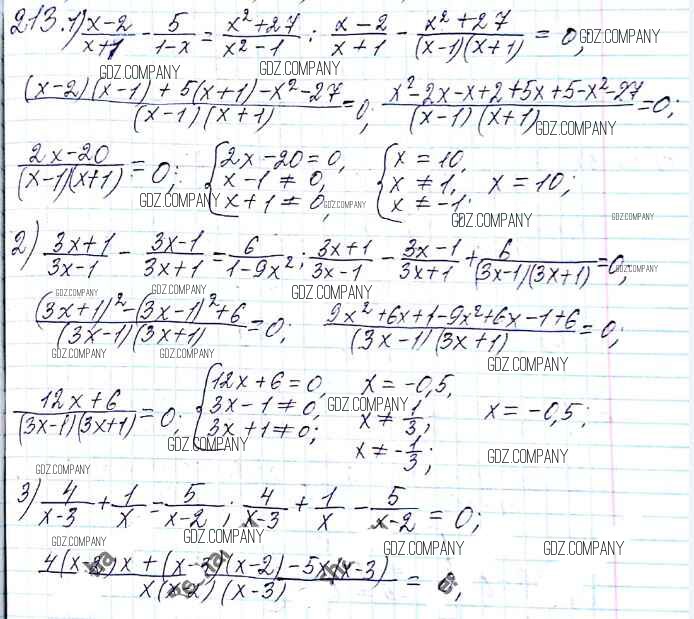 213. 1) (x-2)/(x+1) - 5/(1-x) = (x²+27)/(x²-1); (x-2)/(x+1) - (x²+27)/((x-1)(x+1)) = 0;
GDZ.COMPANY GDZ.COMPANY GDZ.COMPANY
((x-2)(x-1)+5(x+1)-x²-27)/((x-1)(x+1)) = 0; (x²-2x-x+2+5x+5-x²-27)/((x-1)(x+1)) = 0;
GDZ.COMPANY
(2x-20)/((x-1)(x+1)) = 0; { 2x-20=0, x-1≠0, x+1≠0, { x=10, x≠1, x≠-1; x=10;
GDZ.COMPANY GDZ.COMPANY GDZ.COMPANY GDZ.COMPANY
2) (3x+1)/(3x-1) - (3x-1)/(3x+1) = 6/(1-9x²); (3x+1)/(3x-1) - (3x-1)/(3x+1) + 6/((3x-1)(3x+1)) = 0;
GDZ.COMPANY GDZ.COMPANY GDZ.COMPANY
((3x+1)²-(3x-1)²+6)/((3x-1)(3x+1)) = 0; (9x²+6x+1-9x²+6x-1+6)/((3x-1)(3x+1)) = 0;
GDZ.COMPANY GDZ.COMPANY GDZ.COMPANY
(12x+6)/((3x-1)(3x+1)) = 0; { 12x+6=0, 3x-1≠0, 3x+1≠0; x=-0,5, x≠1/3; x≠-1/3; x=-0,5;
GDZ.COMPANY GDZ.COMPANY GDZ.COMPANY
GDZ.COMPANY
3) 4/(x-3) + 1/x = 5/(x-2); 4/(x-3) + 1/x - 5/(x-2) = 0;
GDZ.COMPANY GDZ.COMPANY GDZ.COMPANY GDZ.COMPANY
4(x-2)x+(x-3)(x-2)-5x(x-3)